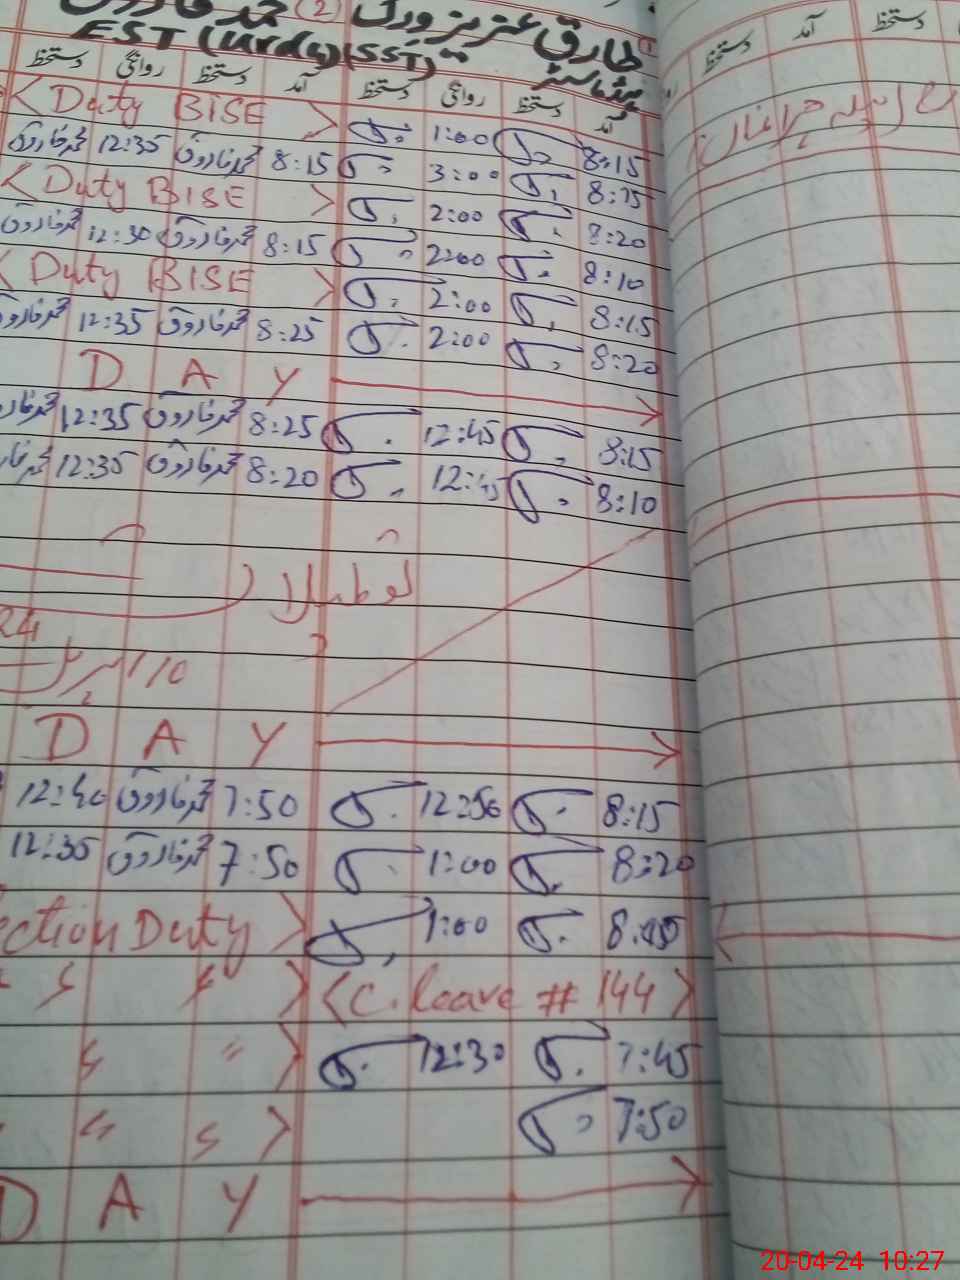 طارق عزیز ورک (2) محمد فاروق
EST (Urdu) (SST)
آمد دستخط روانگی دستخط آمد دستخط روانگی دستخط
دستخط آمد دستخط
< Duty BISE >
1:00 8:15
محمد فاروق 12:35 محمد فاروق 8:15 3:00 8:15
< Duty BISE > 2:00 8:20
محمد فاروق 12:30 محمد فاروق 8:15 2:00 8:10
< Duty BISE > 2:00 8:15
محمد فاروق 12:35 محمد فاروق 8:25 2:00 8:20
D A Y
محمد فاروق 12:35 محمد فاروق 8:25 12:45 8:15
محمد فاروق 12:35 محمد فاروق 8:20 12:45 8:10
24
10
D A Y
12:40 محمد فاروق 7:50 12:50 8:15
12:35 محمد فاروق 7:50 1:00 8:20
ection Duty > 1:00
< C. leave # 144 >
12:30 7:45
7:50
D A Y
20-04-24 10:27